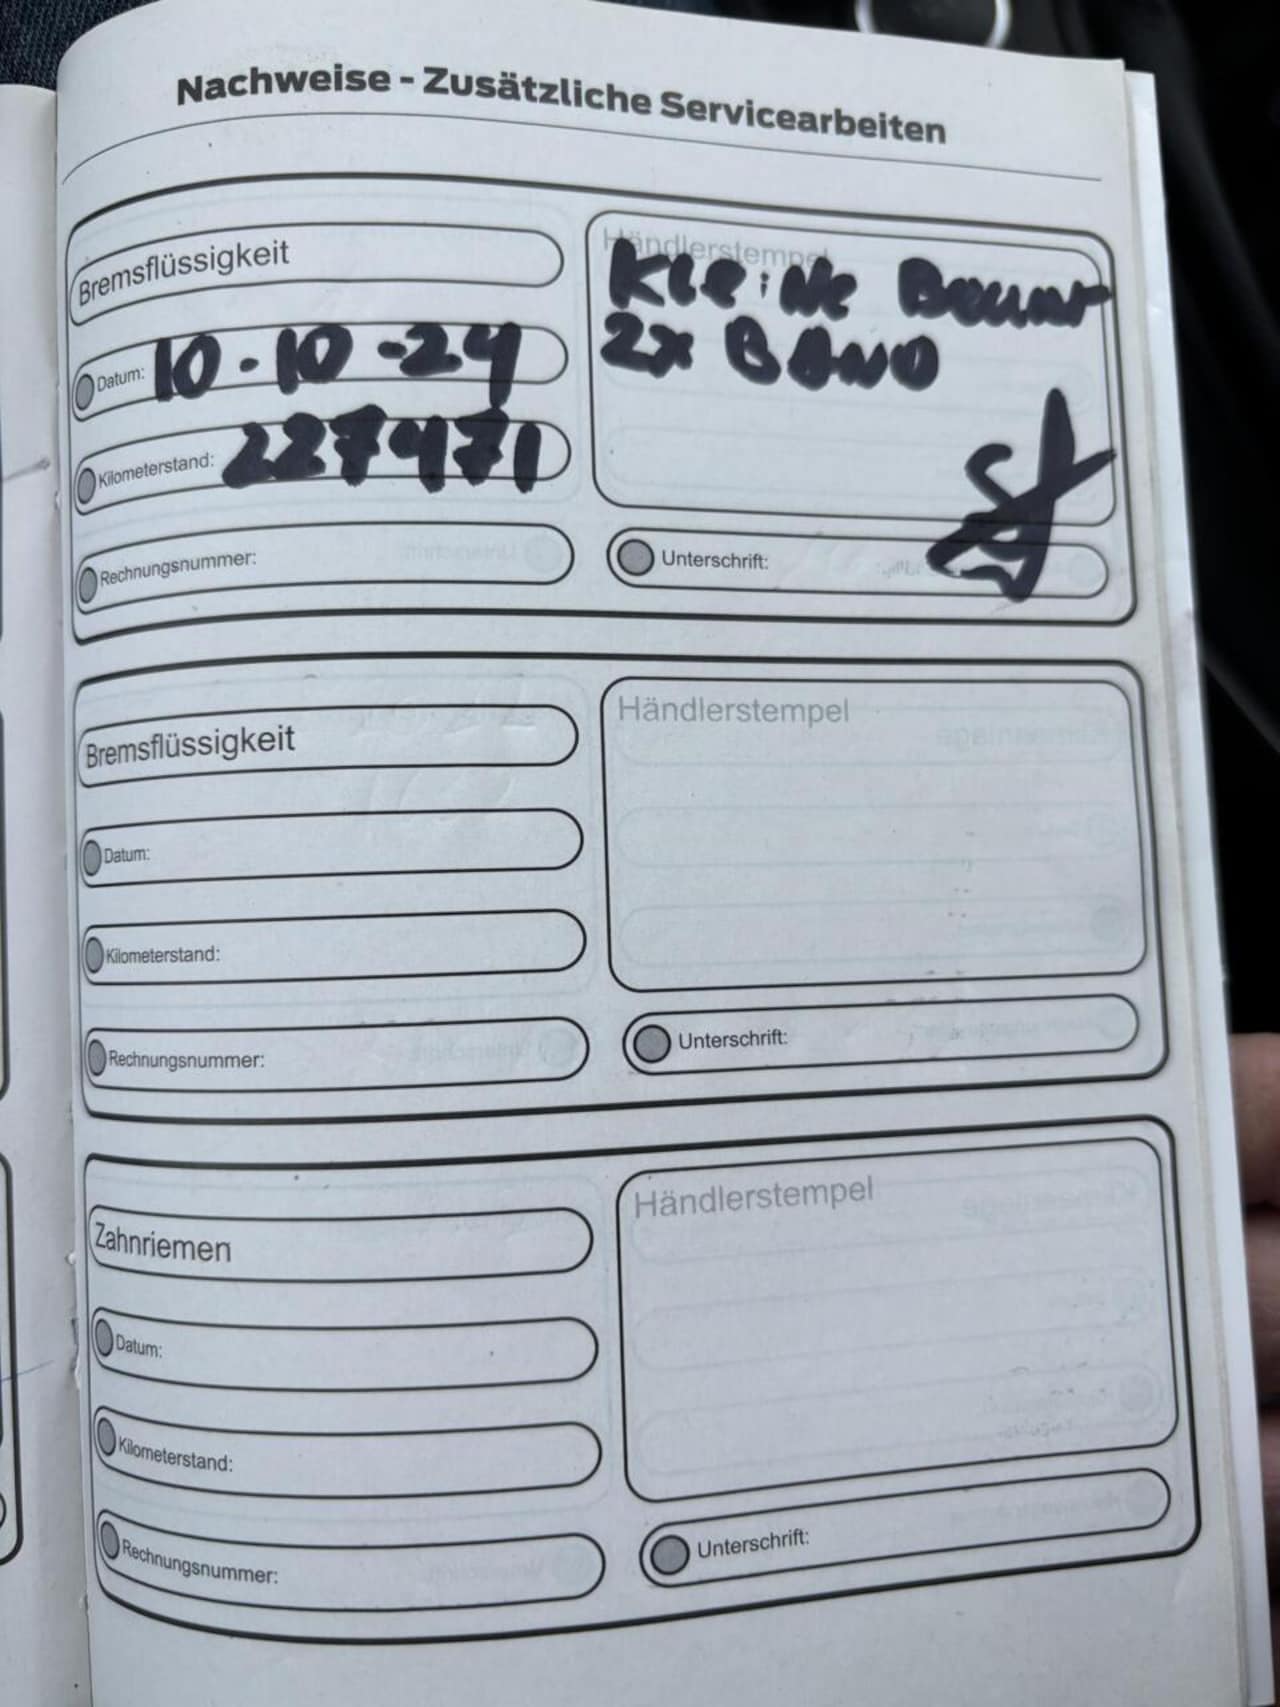 Nachweise - Zusätzliche Servicearbeiten
Bremsflüssigkeit
Händlerstempel
Kleine Beurt
2x BAND
Datum: 10-10-24
Kilometerstand: 227471
Rechnungsnummer:
Unterschrift:
Bremsflüssigkeit
Händlerstempel
Datum:
Kilometerstand:
Rechnungsnummer:
Unterschrift:
Zahnriemen
Händlerstempel
Datum:
Kilometerstand:
Rechnungsnummer:
Unterschrift: